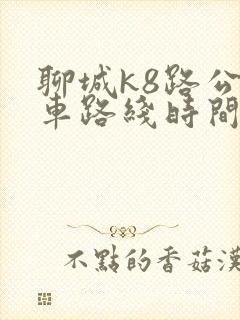 聊城k8路公
車路綫時間
不點的香菇漢